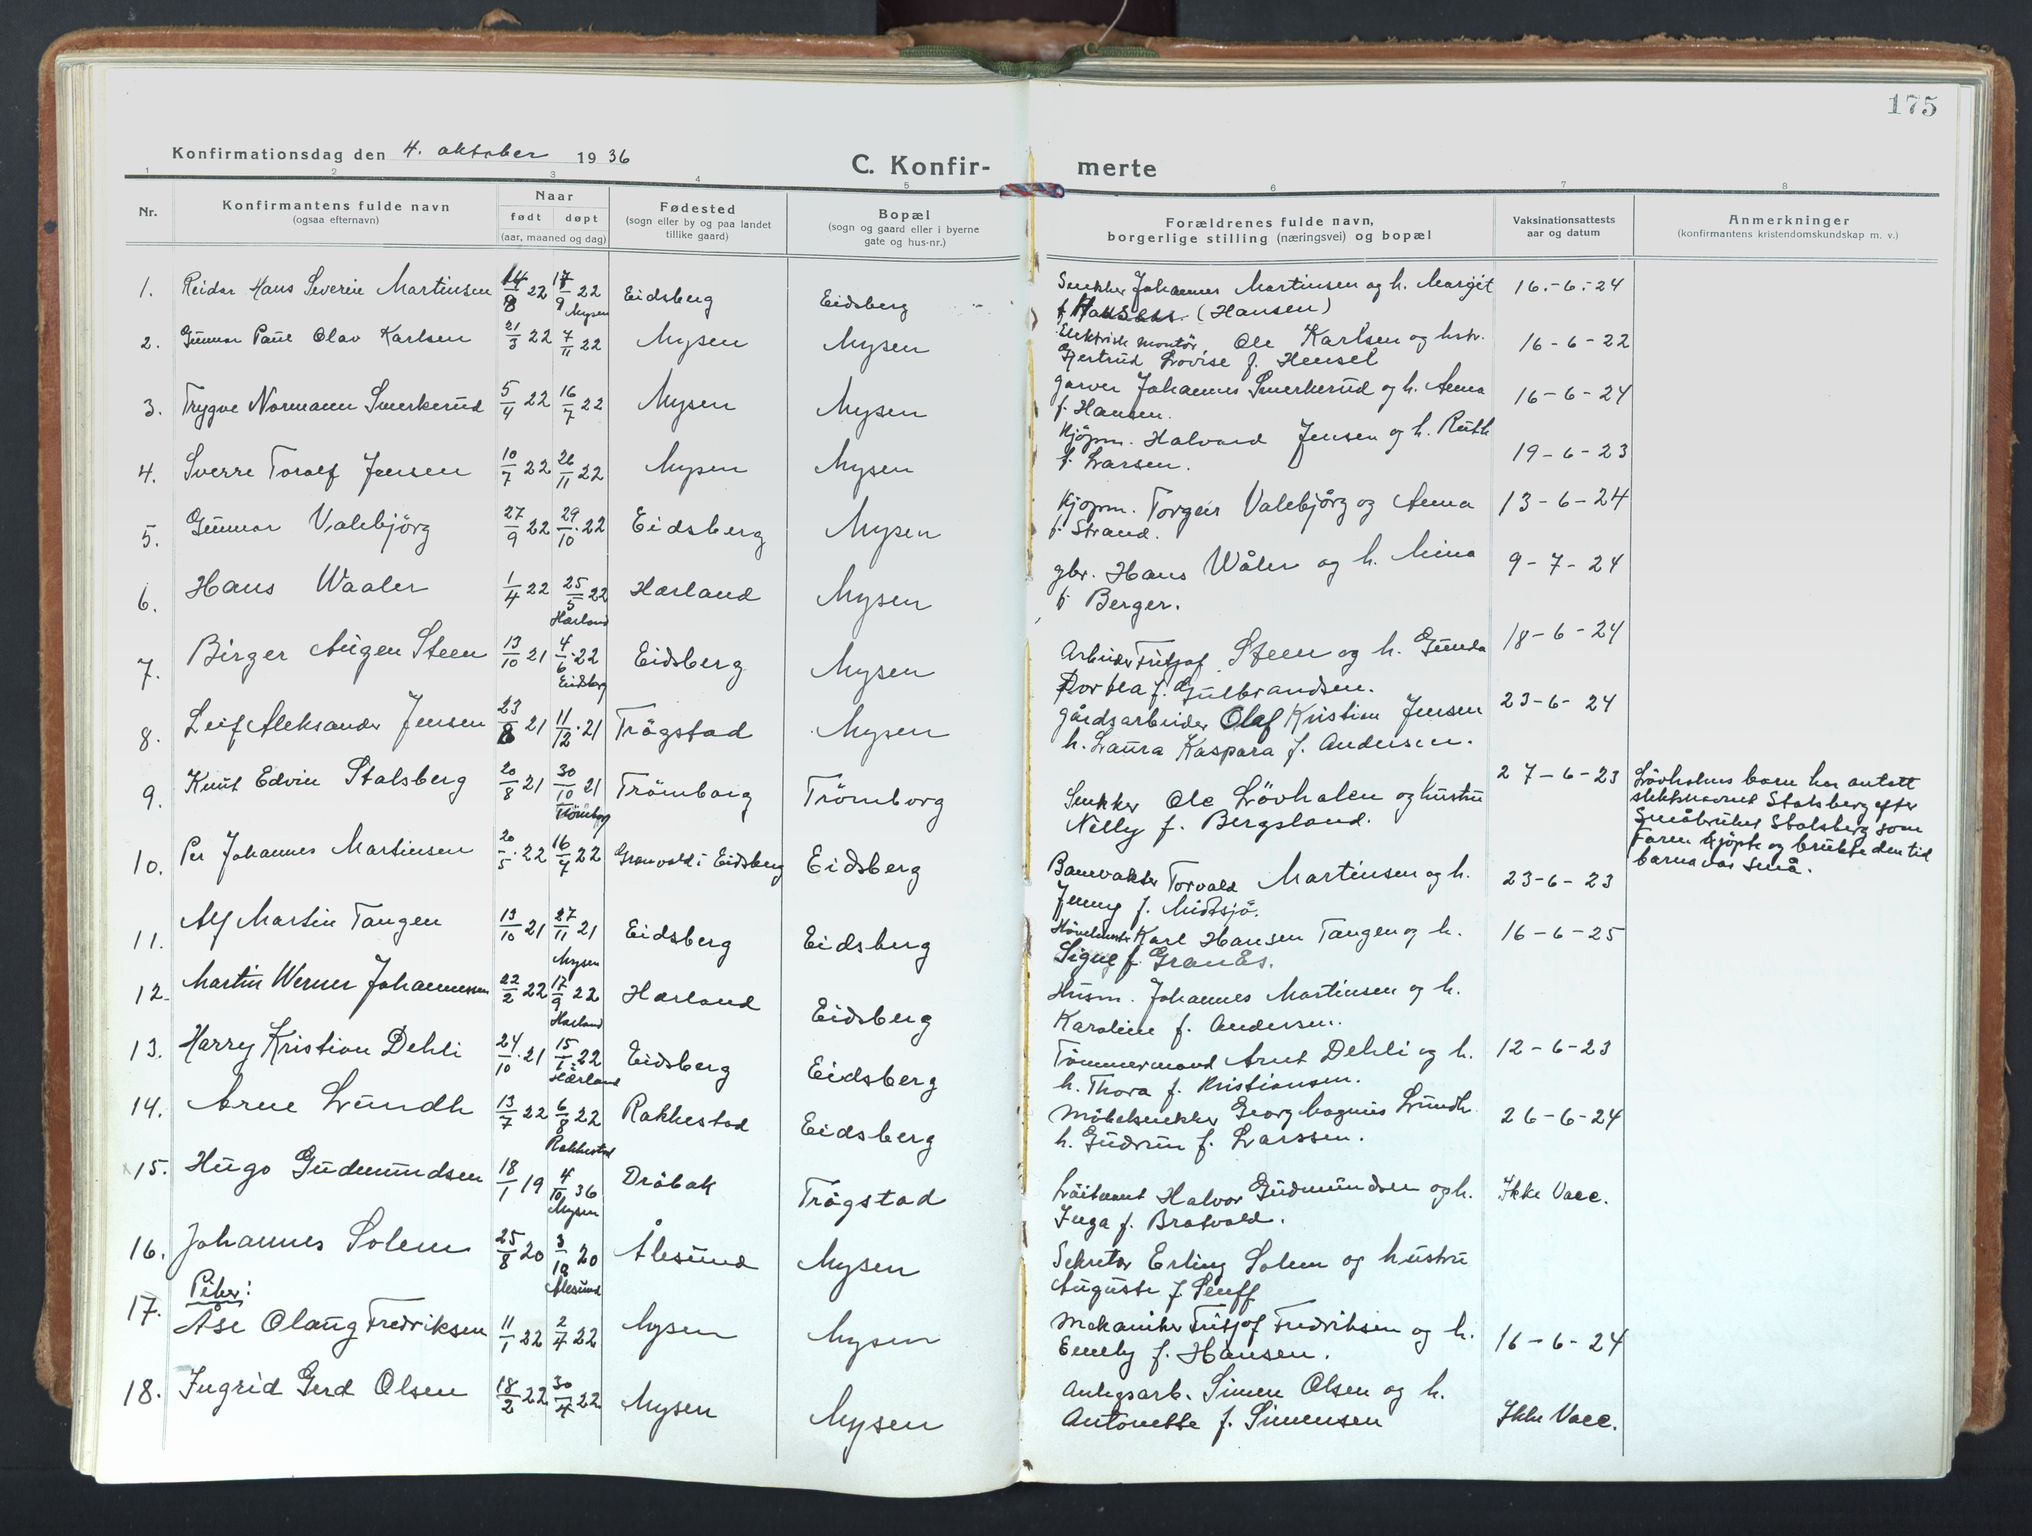 175
Konfirmationsdag den 4. oktober 1936
C. Konfir- merte
1 2 3 4 5 6 7 8
Nr.
Konfirmantens fulde navn
(ogsaa efternavn)
Naar
født døpt
(aar, maaned og dag)
Fødested
(sogn eller by og paa landet
tillike gaard)
Bopæl
(sogn og gaard eller i byerne
gate og hus-nr.)
Forældrenes fulde navn,
borgerlige stilling (næringsvei) og bopæl
Vaksinationsattests
aar og datum
Anmerkninger
(konfirmantens kristendomskundskap m. v.)
1. Reidar Hans Severin Martinsen 14/8 22 17/9 22 Mysen Eidsberg Eidsberg Snekker Johannes Martinsen og h. Margit 16.-6.-24
f. (Hansen)
2. Gunnar Paul Olav Karlsen 21/3 22 7/11 22 Mysen Mysen Elektrisk montör Ole Karlsen og hstr. 16-6-22
Gjertrud Lovise f. Hensel
3. Trygve Normann Smerkerud 5/4 22 16/7 22 Mysen Mysen garver Johannes Smerkerud og h. Anna 16-6-24
f. Hansen.
4. Sverre Toralf Jensen 10/7 22 26/11 22 Mysen Mysen Kjöpm. Halvard Jensen og h. Ruth 19-6-23
f. Larsen.
5. Gunnar Valebjörg 27/9 22 29/10 22 Eidsberg Mysen Kjöpm. Torgeir Valebjörg og Anna 13-6-24
f. Strand.
6. Hans Waaler 1/4 22 25/5 22 Hærland Hærland Mysen gbr. Hans Wåler og h. Mina 9-7-24
f. Berger.
7. Birger Augen Steen 13/10 21 4/6 22 Eidsberg Eidsberg Mysen Arbeider Fritjof Steen og h. Gunda 18-6-24
Dortea f. Gulbrandsen.
8. Leif Aleksander Jensen 23/8 21 11/12 21 Trögstad Mysen gårdsarbeider Olaf Kristian Jensen 23-6-24
h. Laura Kaspara f. Andersen.
9. Knut Edvin Stalsberg 20/8 21 30/10 21 Trömborg Trömborg Trömborg Snekker Ole Lövholen og hustru 27-6-23
Nelly f. Bergsland.
Lövholens barn har antatt
slektsnavnet Stalsberg efter
Småbruket Stalsberg som
Faren kjöpte og brukte den tid
barna var små.
10. Per Johannes Martinsen 20/5 22 16/7 22 Grönvold i Eidsberg Eidsberg Banevokter Torvald Martinsen og h. 23-6-23
Jenny f. Midtsjö.
11. Alf Martin Tangen 13/10 21 27/11 21 Mysen Eidsberg Eidsberg Karl Hansen Tangen og h. 16-6-25
Signe f. GranÅs.
12. Martin Werner Johannessen 22/2 22 17/9 22 Hærland Hærland Eidsberg Husm. Johannes Martinsen og h.
Karoline f. Andersen.
13. Harry Kristian Dehli 24/10 21 15/1 22 Hærland Eidsberg Eidsberg Tömmermand Arnt Dehli og h. 12-6-23
h. Thora f. Kristiansen.
14. Arne Lundh 13/7 22 6/8 22 Rakkestad Rakkestad Eidsberg Möbelsnekker Georg Magnus Lundh 26-6-24
h. Gudrun f. Larssen.
15. Hugo Gudmundsen 18/1 19 4/10 36 Mysen Dröbak Trögstad Löitnant Halvor Gudmundsen og h. Ikke Vacc.
Inga f. Bratvold.
16. Johannes Solem 25/8 20 3/10 20 Ålesund Ålesund Mysen Sekretær Erling Solem og hustru
Auguste f. Senff
Piker:
17. Åse Olaug Fredriksen 11/1 22 2/4 22 Mysen Mysen Mekaniker Fritjof Fredriksen og h. 16-6-24
Emely f. Hansen.
18. Ingrid Gerd Olsen 18/2 22 30/4 22 Mysen Mysen Anlegsarb. Simen Olsen og h.
Antonette f. Simensen Ikke Vacc.